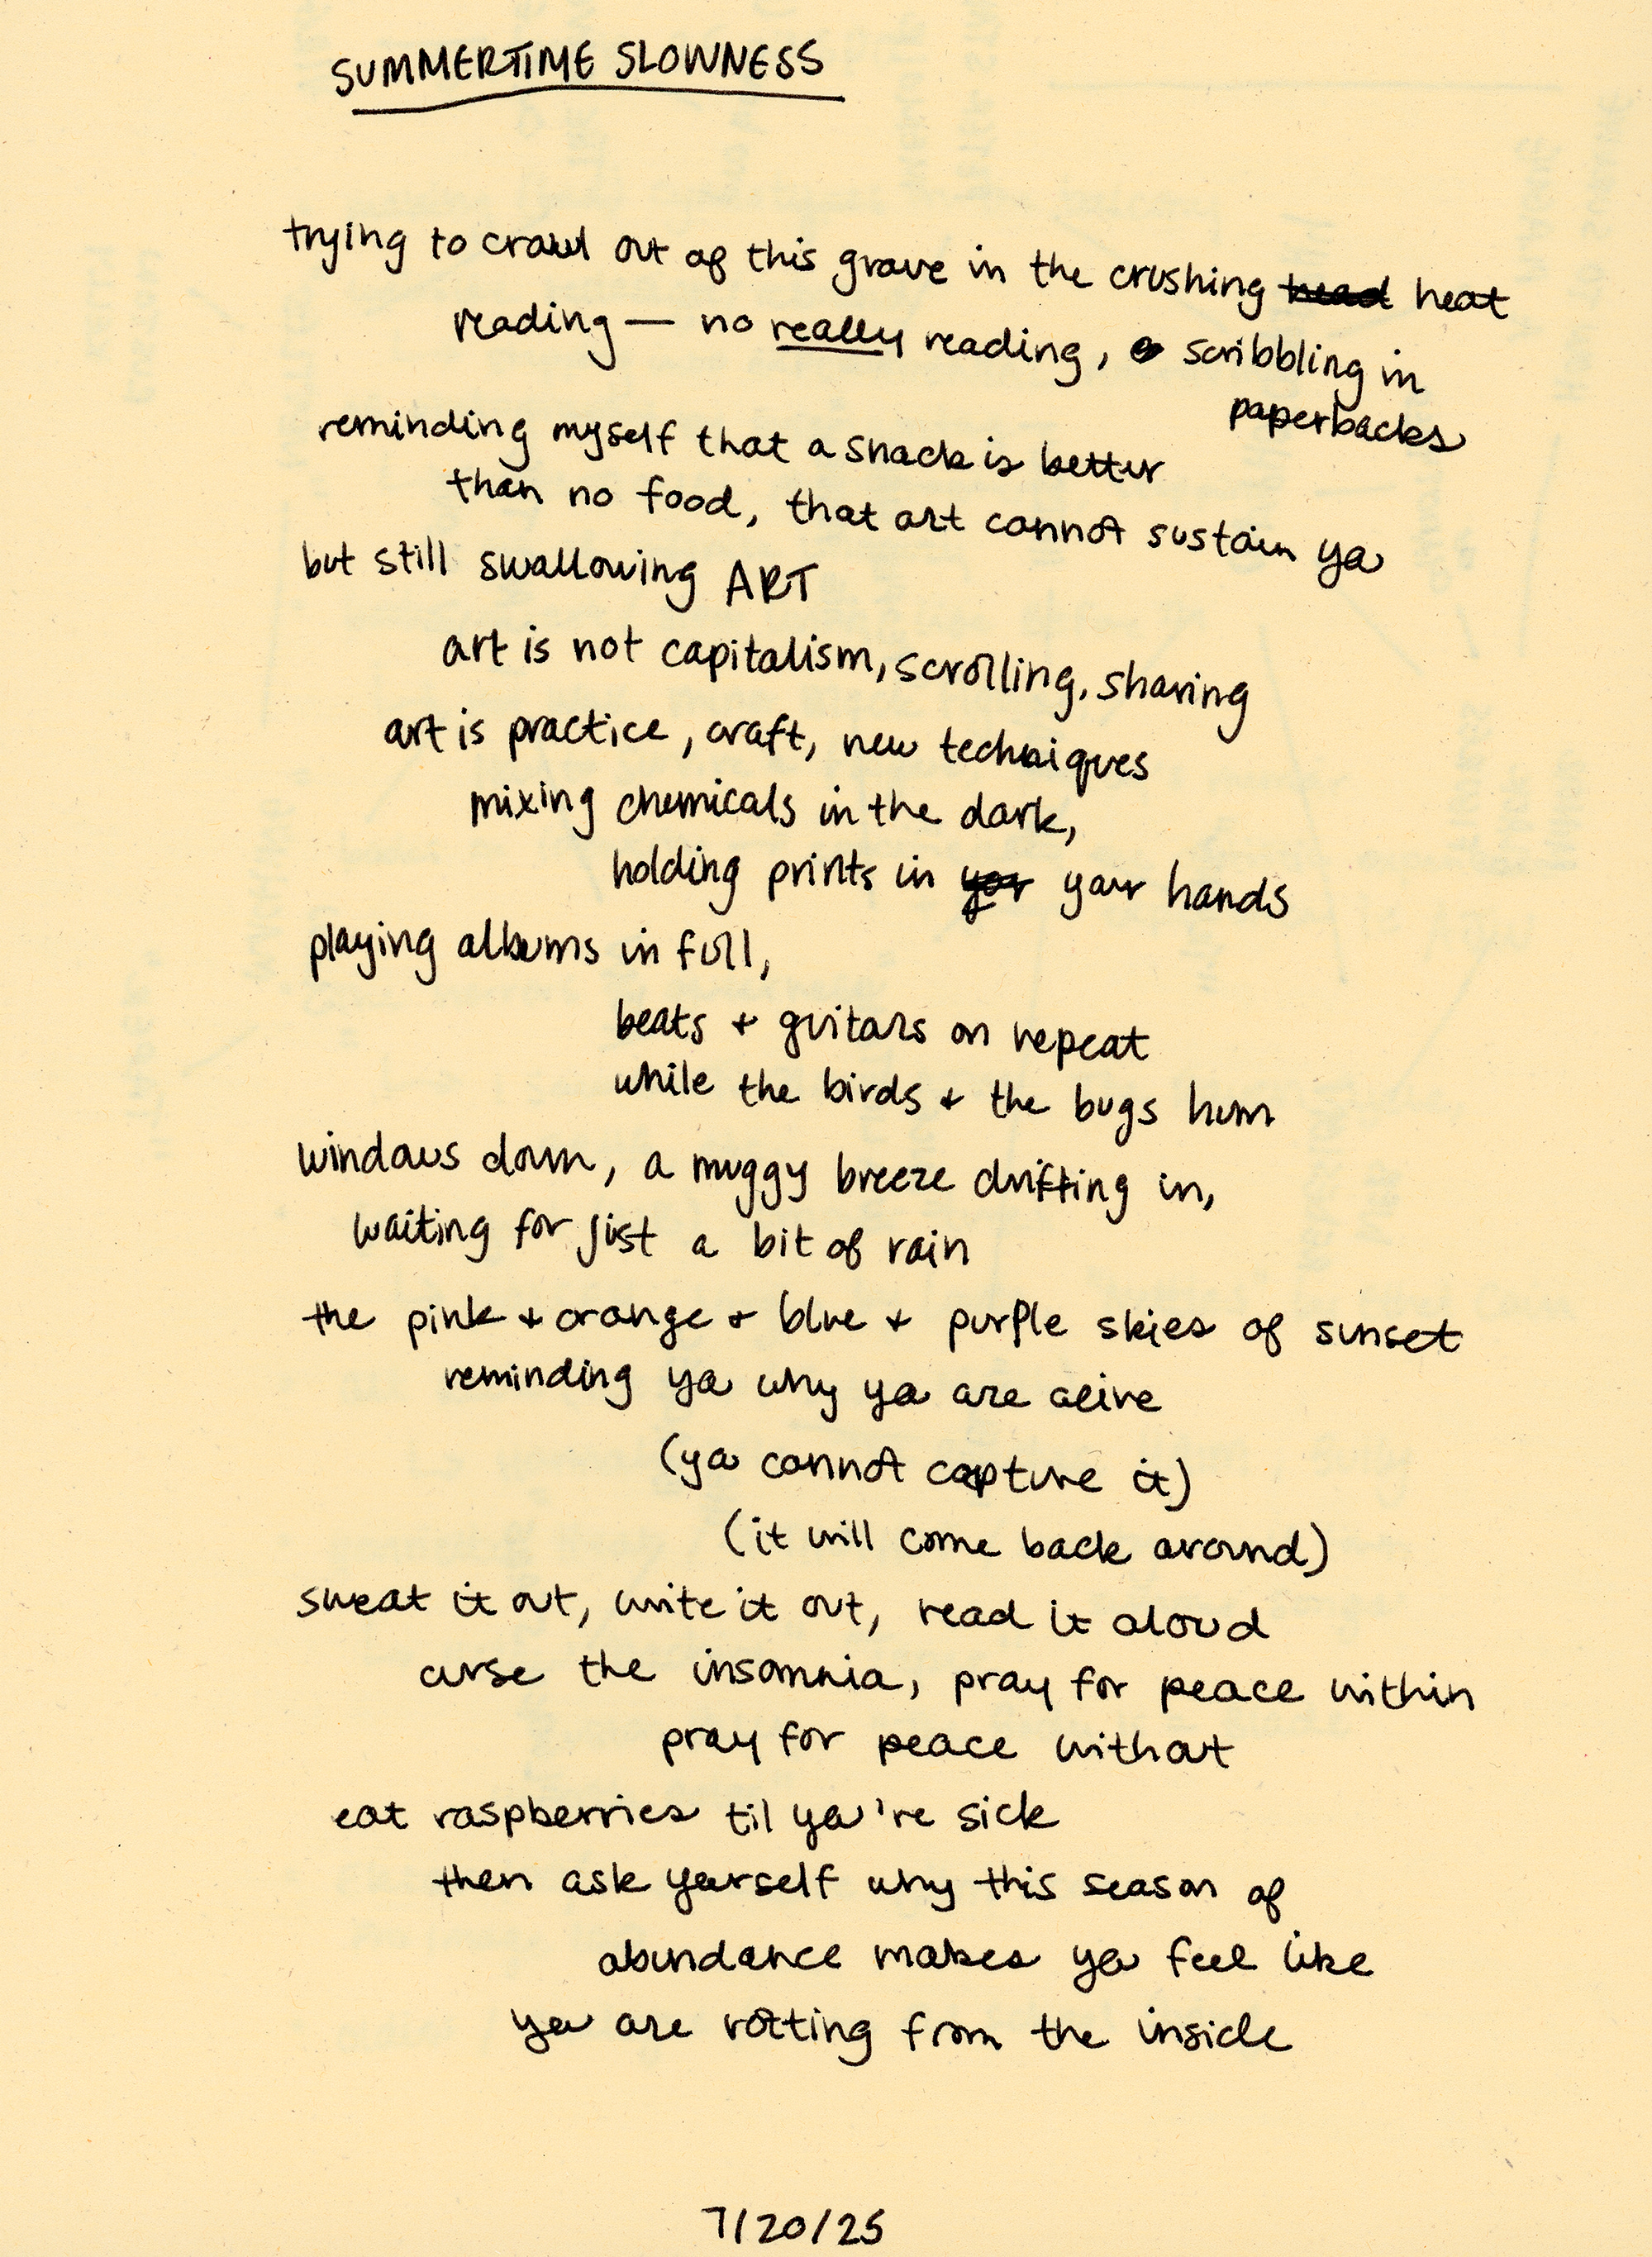 SUMMERTIME SLOWNESS
trying to crawl out of this grave in the crushing head heat
reading — no really reading, scribbling in
paperbacks
reminding myself that a snack is better
than no food, that art cannot sustain ya
but still swallowing ART
art is not capitalism, scrolling, sharing
art is practice, craft, new techniques
mixing chemicals in the dark,
holding prints in yor your hands
playing albums in full,
beats + guitars on repeat
while the birds + the bugs hum
windows down, a muggy breeze drifting in,
waiting for just a bit of rain
the pink + orange + blue + purple skies of sunset
reminding ya why ya are alive
(ya cannot capture it)
(it will come back around)
sweat it out, write it out, read it aloud
curse the insomnia, pray for peace within
pray for peace without
eat raspberries til ya're sick
then ask yourself why this season of
abundance makes ya feel like
ya are rotting from the inside
7/20/25